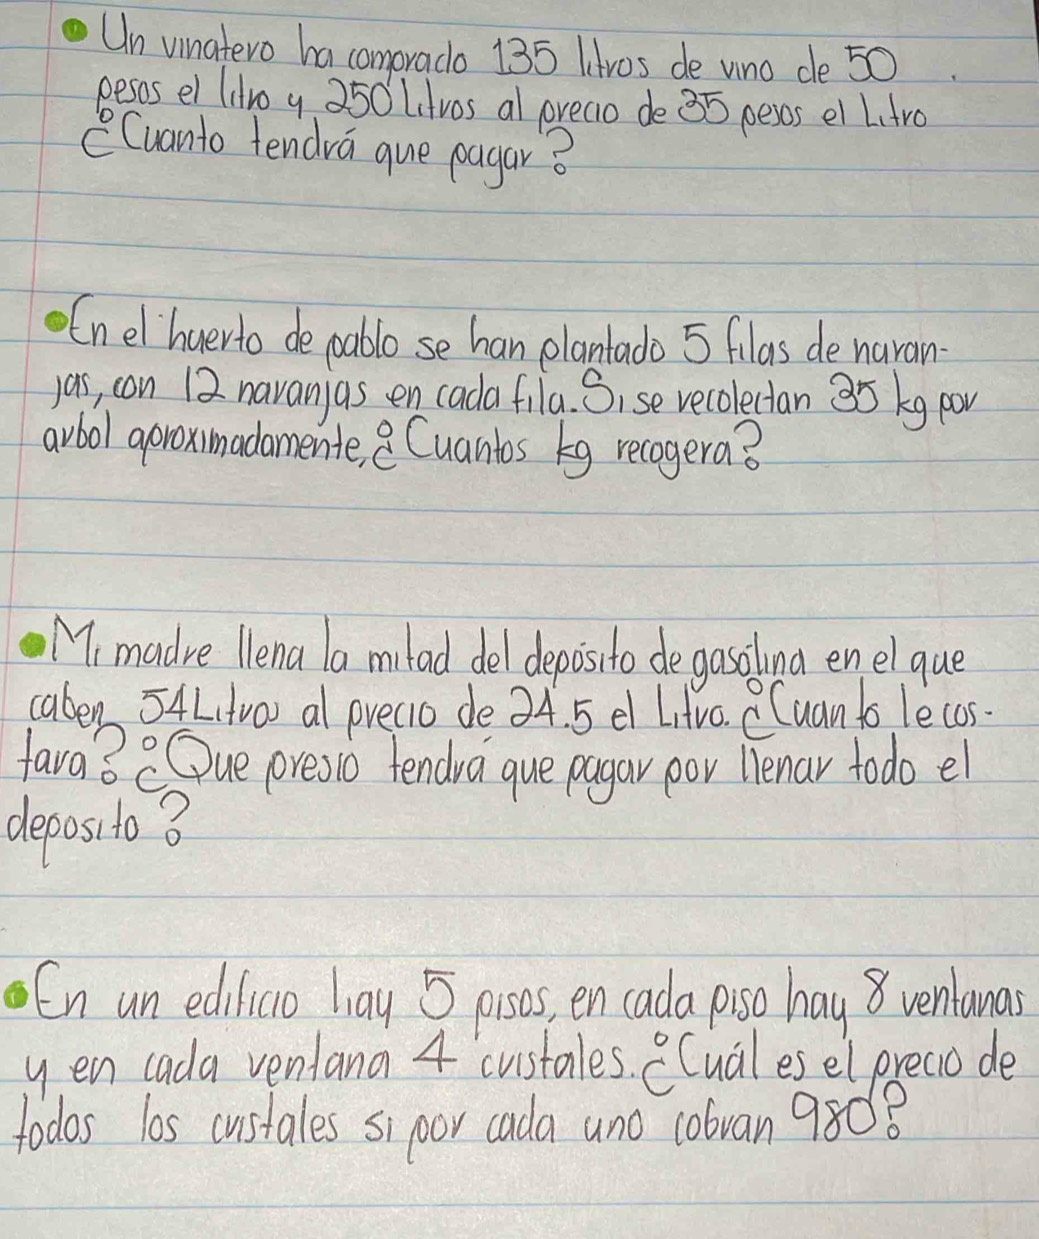 Un vinatero ha comprado 135 litros de vino de 50 .
pesos el litro y 250 Litros al precio de 35 pesos el Litro
¿Cuanto tendrá que pagar?
En el huerto de pablo se han plantado 5 filas de naran-
jas, con 12 naranjas en cada fila. Si se recolectan 35 kg por
arbol aproximadamente, ¿Cuantos kg recogera?
Mi madre llena la mitad del depósito de gasolina en el que
caben 54 Litros al precio de 24.5 el Litro. ¿Cuanto le cos-
tara? ¿Que presio tendrá que pagar por llenar todo el
deposito?
En un edificio hay 5 pisos, en cada piso hay 8 ventanas
y en cada ventana 4 cristales. ¿Cuál es el precio de
todos los cristales si por cada uno cobran 980?